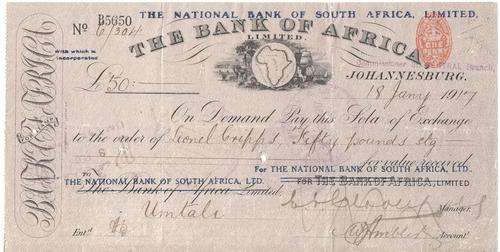 THE NATIONAL BANK OF SOUTH AFRICA, LIMITED.
No B5650
6/304
THE BANK OF AFRICA
LIMITED.
with which is
incorporated
BANK OF AFRICA
ONE PENNY
JOHANNESBURG.
£50:—
18 Jany 1917
On Demand Pay this Sola of Exchange
to the order of Lionel Cripps, Fifty pounds stg
for value received
For THE NATIONAL BANK OF SOUTH AFRICA, LTD.
To
THE NATIONAL BANK OF SOUTH AFRICA, LTD.
FOR THE BANK OF AFRICA, LIMITED
The Bank of Africa Limited
Manager.
Umtali
Entd
Accountt